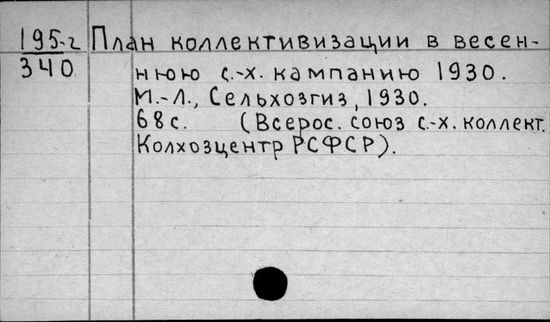 195-г План коллективизации в весен-
340
нюю с.-х. кампанию 1930.
М.-Л., Сельхозгиз, 1930.
68с. (Всерос. союз с.-х. коллект.
Колхозцентр РСФСР).